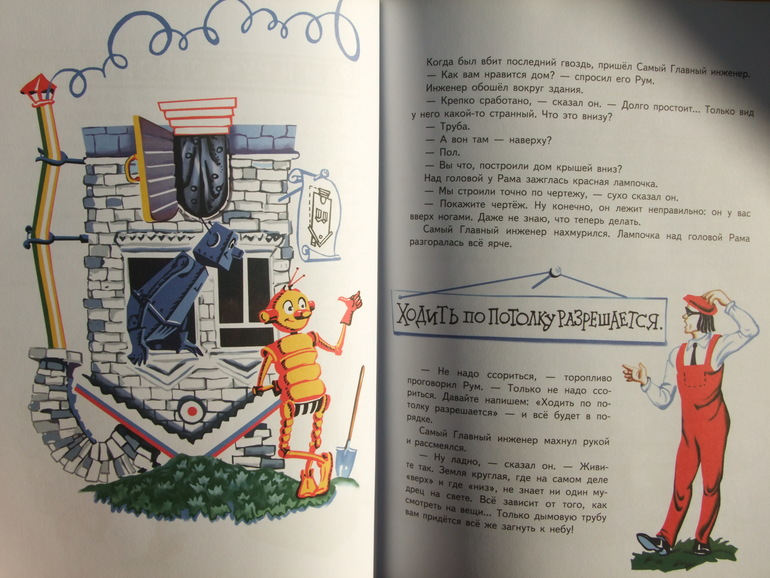 Когда был вбит последний гвоздь, пришёл Самый Главный инженер.
— Как вам нравится дом? — спросил его Рум.
Инженер обошёл вокруг здания.
— Крепко сработано, — сказал он. — Долго простоит... Только вид
у него какой-то странный. Что это внизу?
— Труба.
— А вон там — наверху?
— Пол.
— Вы что, построили дом крышей вниз?
Над головой у Рама зажглась красная лампочка.
— Мы строили точно по чертежу, — сухо сказал он.
— Покажите чертёж. Ну конечно, он лежит неправильно: он у вас
вверх ногами. Даже не знаю, что теперь делать.
Самый Главный инженер нахмурился. Лампочка над головой Рама
разгоралась всё ярче.
ХОДИТЬ ПО ПОТОЛКУ РАЗРЕШАЕТСЯ.
— Не надо ссориться, — торопливо
проговорил Рум. — Только не надо ссо-
риться. Давайте напишем: «Ходить по по-
толку разрешается» — и всё будет в по-
рядке.
Самый Главный инженер махнул рукой
и рассмеялся.
— Ну ладно, — сказал он. — Живи-
те так. Земля круглая, где на самом деле
«верх» и где «низ», не знает ни один му-
дрец на свете. Всё зависит от того, как
смотреть на вещи... Только дымовую трубу
вам придётся всё же загнуть к небу!